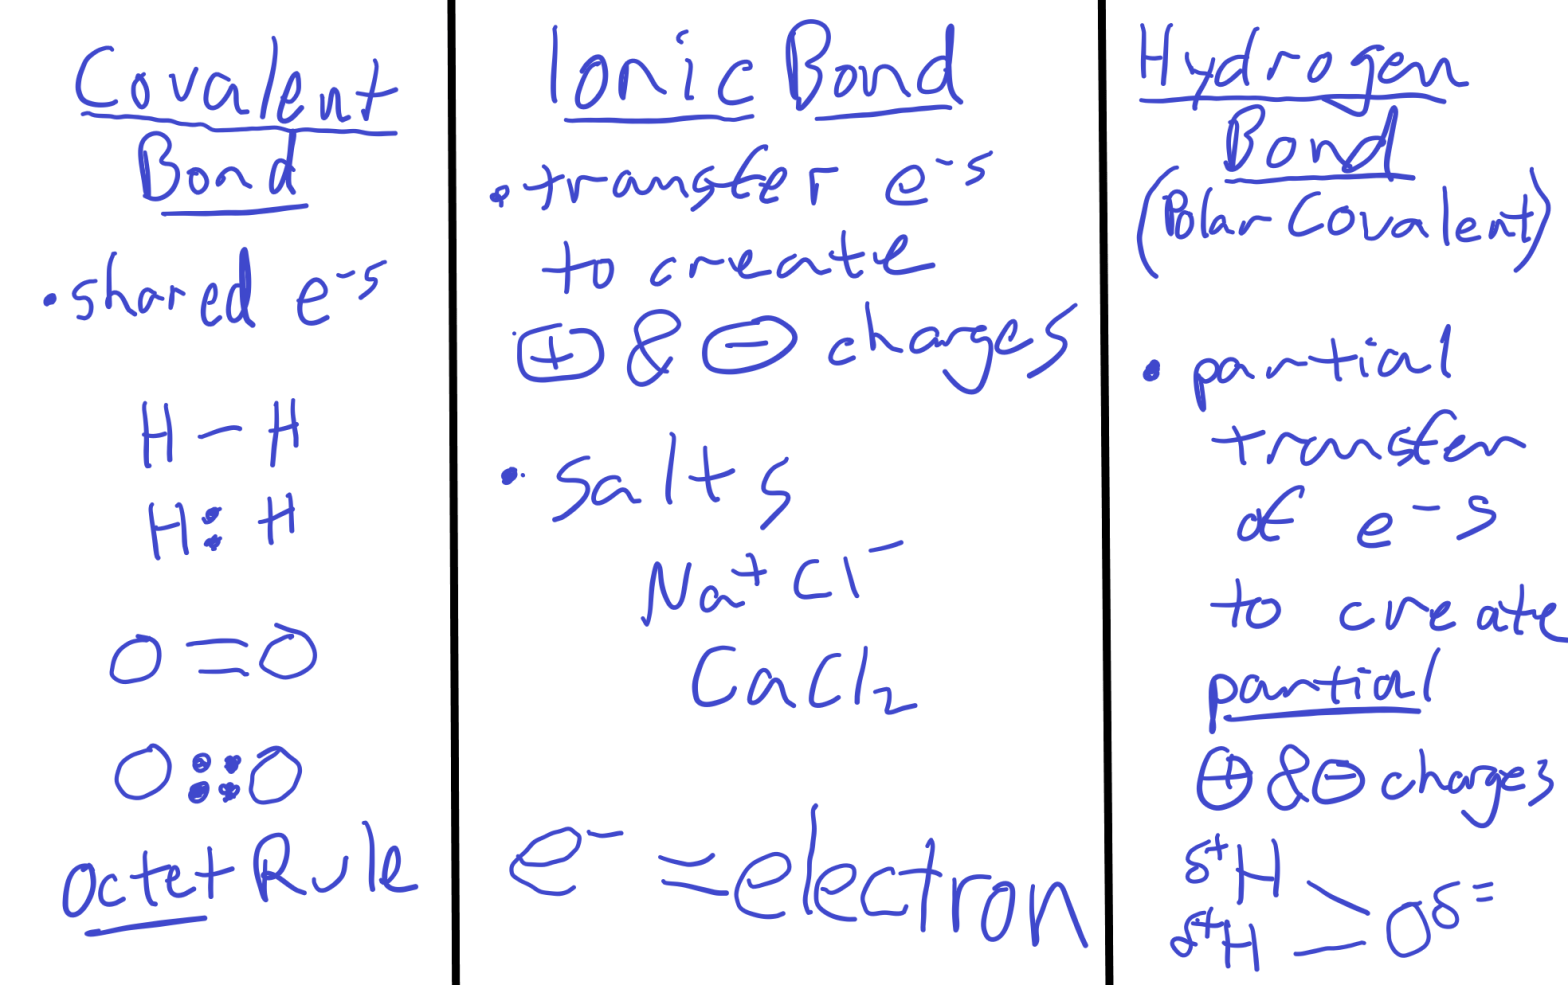 Covalent
Bond
• shared e⁻s
H – H
H : H
O = O
O :: O
octet Rule
Ionic Bond
• transfer e⁻s
to create
⊕ & ⊖ charges
• salts
Na⁺Cl⁻
CaCl₂
e⁻ = electron
Hydrogen
Bond
(Polar Covalent)
• partial
transfer
of e⁻s
to create
partial
⊕ & ⊖ charges
δ⁺H
δ⁺H > Oδ⁼